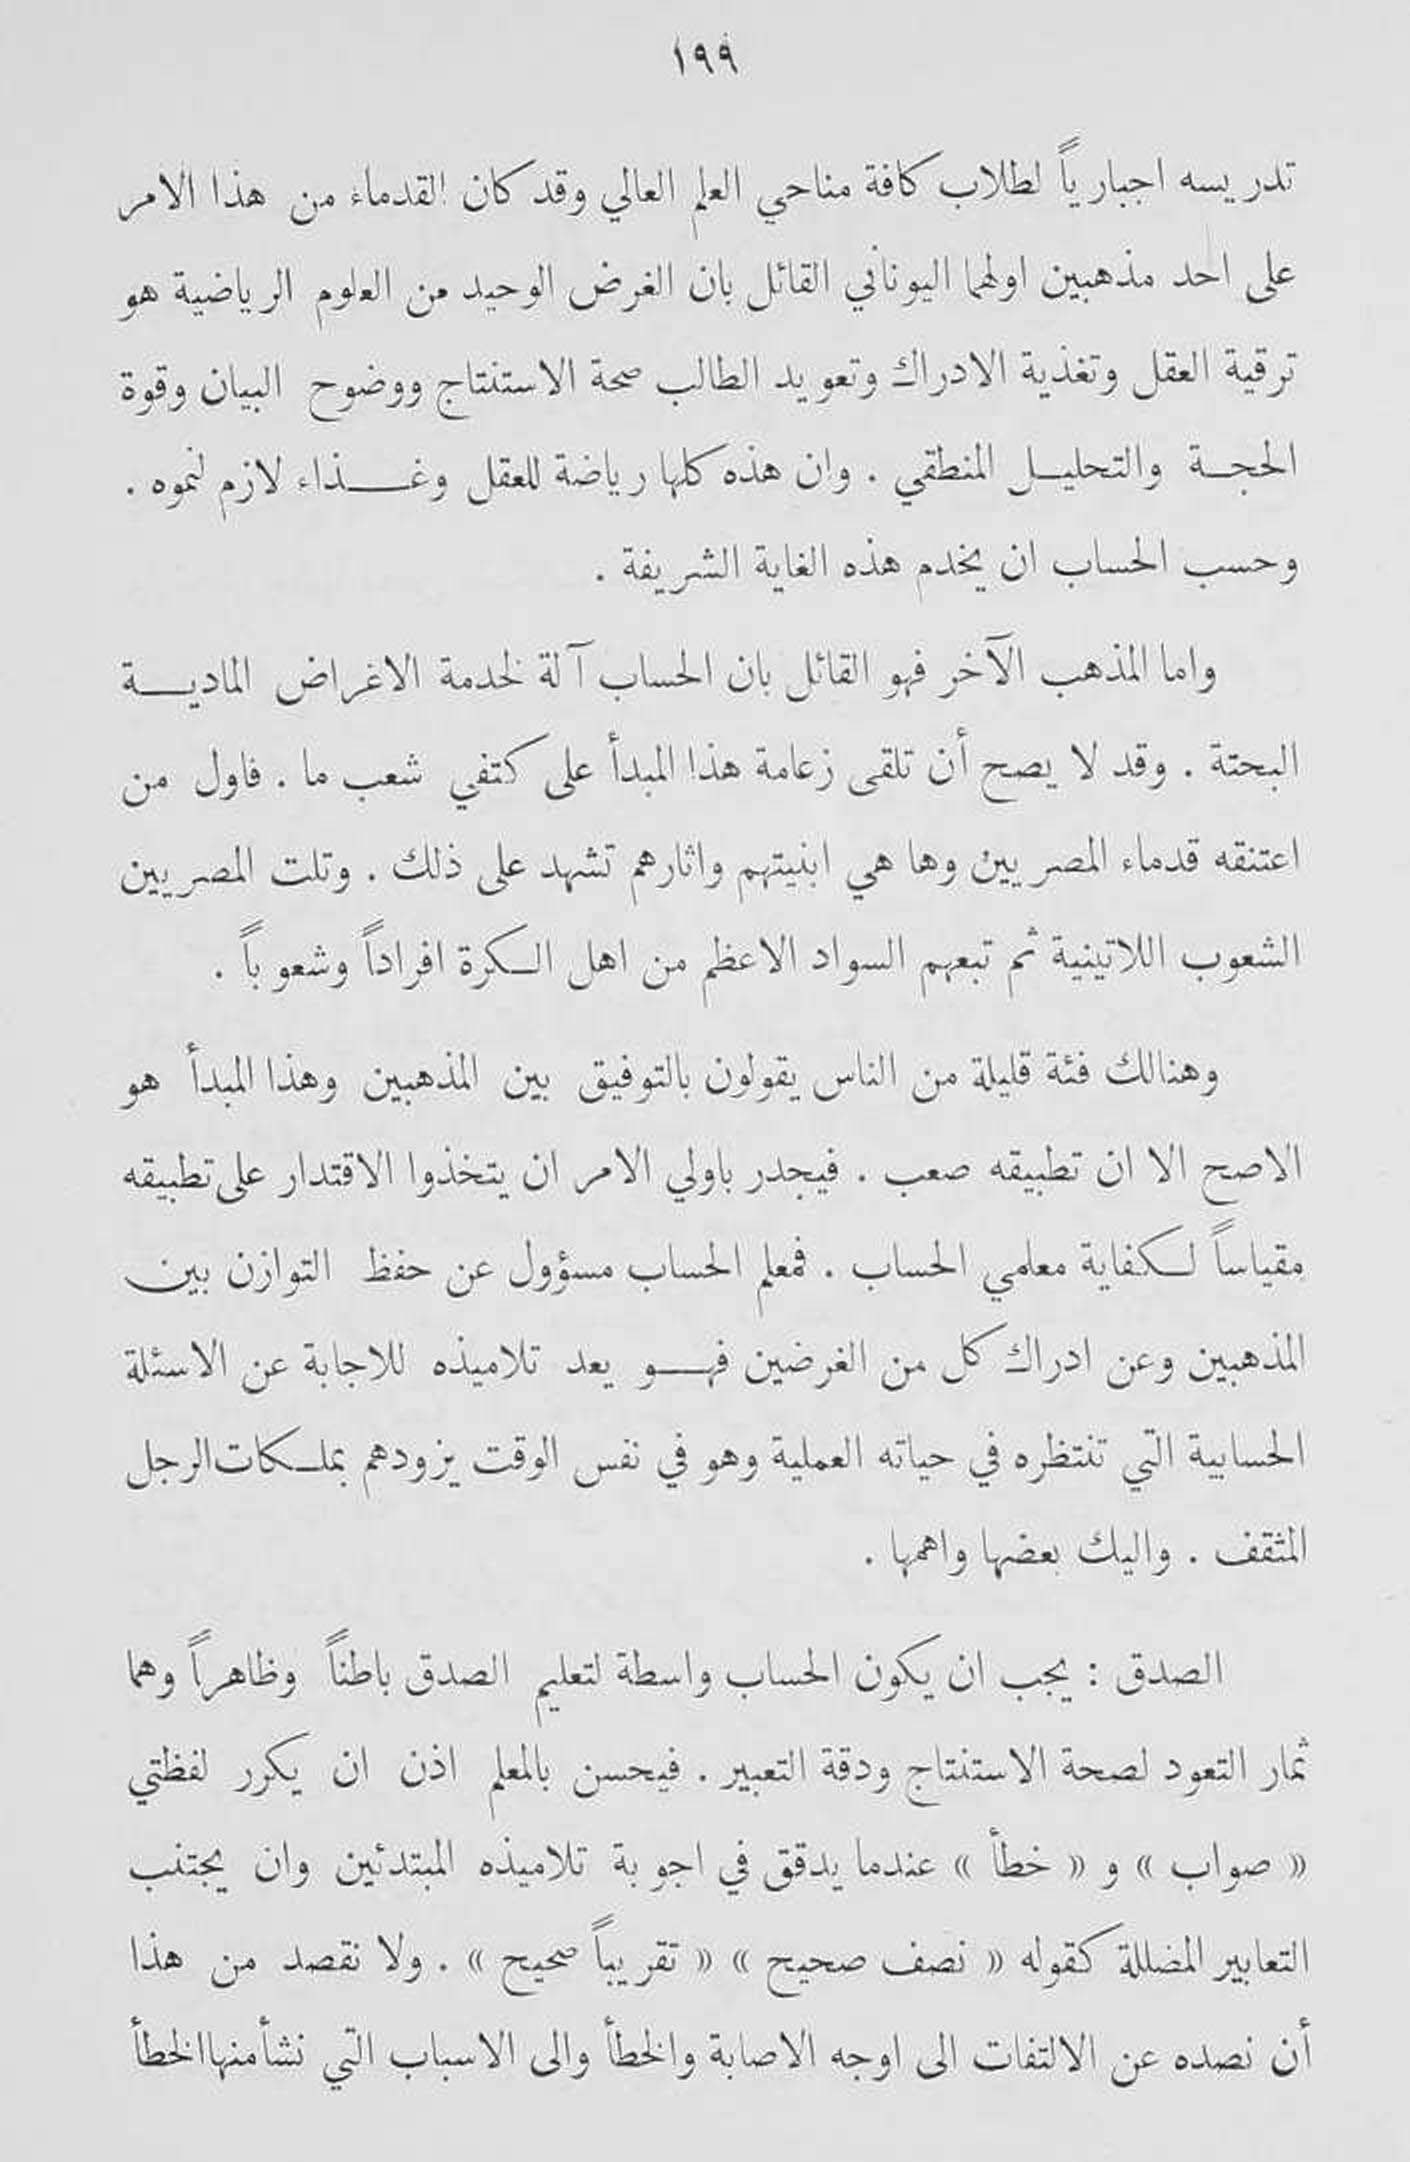 ١٩٩
تدريسه اجبارياً لطلاب كافة مناحي العلم العالي وقد كان القدماء من هذا الامر
على احد مذهبين اولهما اليوناني القائل بان الغرض الوحيد من العلوم الرياضية هو
ترقية العقل وتغذية الادراك وتعويد الطالب صحة الاستنتاج ووضوح البيان وقوة
الحجة والتحليل المنطقي . وان هذه كلها رياضة للعقل وغذاء لازم لنموه .
وحسب الحساب ان يخدم هذه الغاية الشريفة .
واما المذهب الآخر فهو القائل بان الحساب آلة لخدمة الاغراض المادية
البحتة . وقد لا يصح أن تلقى زعامة هذا المبدأ على كتفي شعب ما . فاول من
اعتنقه قدماء المصريين وها هي ابنيتهم واثارهم تشهد على ذلك . وتلت المصريين
الشعوب اللاتينية ثم تبعهم السواد الاعظم من اهل الكرة افراداً وشعوباً .
وهنالك فئة قليلة من الناس يقولون بالتوفيق بين المذهبين وهذا المبدأ هو
الاصح الا ان تطبيقه صعب . فيجدر باولي الامر ان يتخذوا الاقتدار على تطبيقه
مقياساً لكفاية معلمي الحساب . فمعلم الحساب مسؤول عن حفظ التوازن بين
المذهبين وعن ادراك كل من الغرضين فهو يعد تلاميذه للاجابة عن الاسئلة
الحسابية التي تنتظره في حياته العملية وهو في نفس الوقت يزودهم بملكات الرجل
المثقف . واليك بعضها واهمها .
الصدق : يجب ان يكون الحساب واسطة لتعليم الصدق باطناً وظاهراً وهما
ثمار التعود لصحة الاستنتاج ودقة التعبير . فيحسن بالمعلم اذن ان يكرر لفظتي
« صواب » و « خطأ » عندما يدقق في اجوبة تلاميذه المبتدئين وان يجتنب
التعابير المضللة كقوله « نصف صحيح » « تقريباً صحيح » . ولا نقصد من هذا
أن نصده عن الالتفات الى اوجه الاصابة والخطأ والى الاسباب التي نشأ منها الخطأ